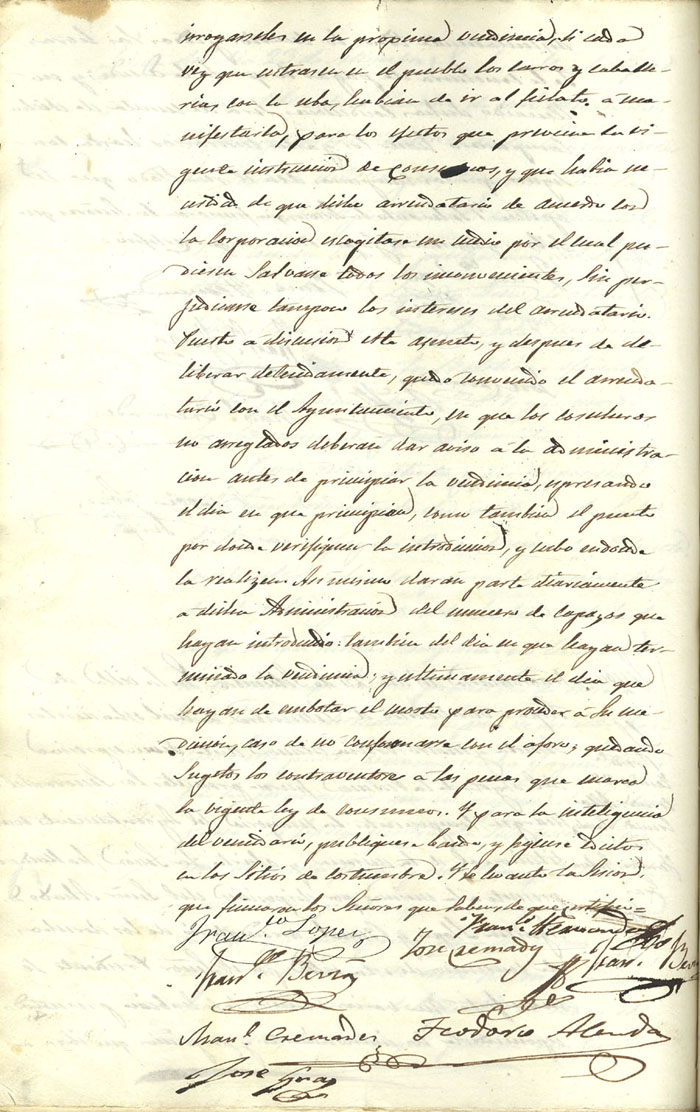 irrogarseles en la proxima vendimia, si cada
vez que entrasen en el pueblo los carros y caballe-
rias con la uba, habian de ir al fielato á ma-
nifestarla, para los efectos que previene la vi-
gente instruccion de consumos, y que habia ne-
cesidad de que dicho arrendatario de acuerdo con
la Corporacion escogitase un medio por el cual pu-
diesen salvarse todos los inconvenientes, sin per-
judicarse tampoco los intereses del arrendatario.
Puesto a discusion este asunto, y despues de de-
liberar detenidamente, quedo convenido el arrenda-
tario con el Ayuntamiento, en que los cosecheros
no arreglados deberan dar aviso á la administra-
cion antes de principiar la vendimia, espresando
el dia en que principian, como tambien el punto
por donde verifiquen la introduccion, y cubo endonde
la realizen. Asi mismo daran parte diariamente
a dicha Administracion del numero de capazos que
hayan introducido: tambien del dia en que hayan ter-
minado la vendimia; y ultimamente el dia que
hayan de embotar el mosto para proceder á su me-
dicion, caso de no conformarse con el aforo; quedando
sugetos los contraventores a las penas que marca
la vigente ley de consumos. Y para la inteligencia
del vecindario, publiquese bando, y fijense edictos
en los sitios de costumbre. Y se levantó la sesion,
que firmaron los Señores que saben de que certifico
Franco Lopez
Jose Cremades
Franco Hernandez
Franco Berna
Franco
Manl. Cremades
Teodoro Alenda
Jose